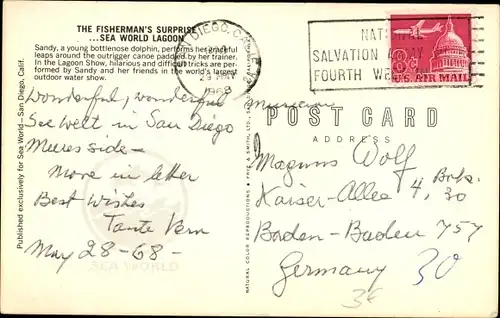 THE FISHERMAN'S SURPRISE
...SEA WORLD LAGOON
Sandy, a young bottlenose dolphin, performs her graceful
leaps around the outrigger canoe paddled by her trainer.
In the Lagoon Show, hilarious and difficult tricks are per-
formed by Sandy and her friends in the world's largest
outdoor water show.
Wonderful, wonderful
See Welt in San Diego
Meeres side —
More in letter
Best Wishes
Tante Vern
May 28-68-
SEA WORLD
Published exclusively for Sea World — San Diego, Calif.
SAN DIEGO, CALIF.
29 MAY
1968
NAT
SALVATION ARMY
FOURTH WE
8¢
U.S. AIR MAIL
POST CARD
ADDRESS
Magnus Wolf
Kaiser-Allee 4,
30
Baden-Baden 757
Germany
30
NATURAL COLOR REPRODUCTIONS